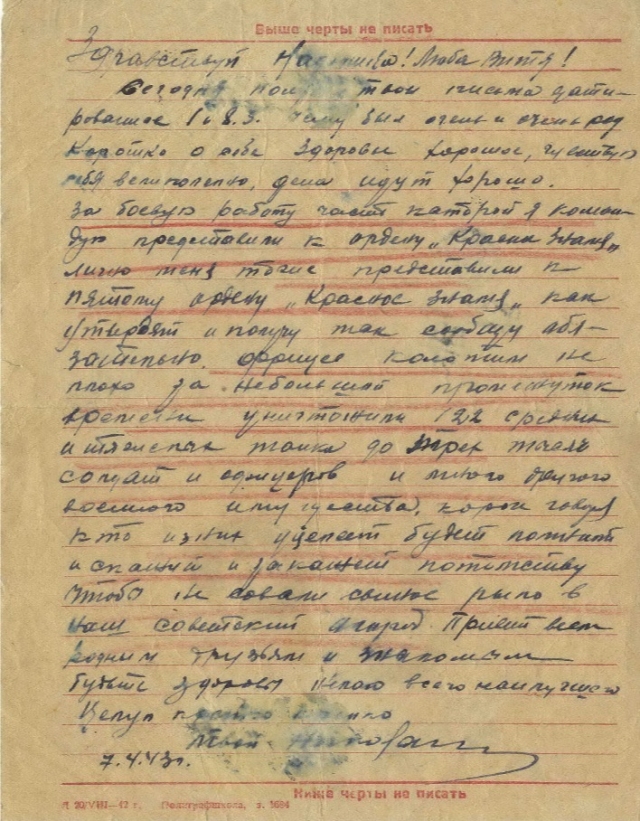 Выше черты не писать
Здравствуй Надюшка! Люба Витя!
Сегодня твои письма дати-
рованное 1 и 8.3. чему был очень и очень рад
Коротко о себе Здоровье хорошое, чувствую
себя великолепно, дела идут хорошо.
За боевую работу часть каторой я коман-
дую представили к ордену „Красная Знамя„
лично меня тоже представили к
пятому ордену „Красное знамя„ как
утвердят и получу так сообщу обя-
зательно. фрицев колотим не
плохо за небольшой промежуток
времени уничтожили 122 средних
и тяжелых танка до трех тысяч
солдат и офицеров и много другого
военного имущества, короч говоря
кто из них уцелеет будет помнить
и скажет и закажет потомству
чтобы не совали свиное рыло в
наш советский агарод. Привет всем
родным друзьям и знакомым
будьте здоровы желаю всего наилучшего
Целую крепко крепко
Твой
7.4.43г.
Ниже черты не писать
29/VIII—42 г. Полиграфшкола, з. 1684